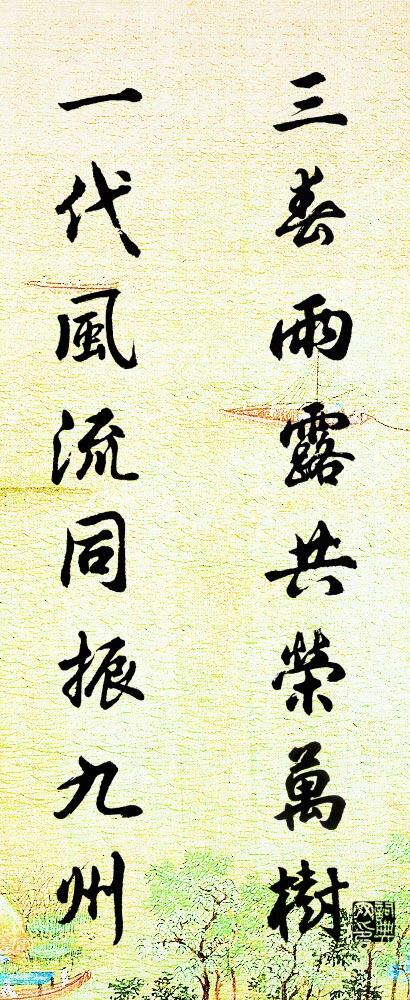 三春雨露共榮萬樹
一代風流同振九州